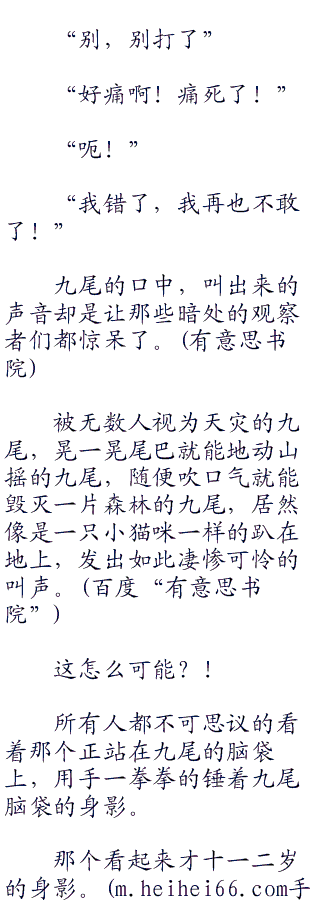 “别，别打了”
“好痛啊！痛死了！”
“呃！”
“我错了，我再也不敢
了！”
九尾的口中，叫出来的
声音却是让那些暗处的观察
者们都惊呆了。(有意思书
院)
被无数人视为天灾的九
尾，晃一晃尾巴就能地动山
摇的九尾，随便吹口气就能
毁灭一片森林的九尾，居然
像是一只小猫咪一样的趴在
地上，发出如此凄惨可怜的
叫声。(百度“有意思书
院”)
这怎么可能？！
所有人都不可思议的看
着那个正站在九尾的脑袋
上，用手一拳拳的锤着九尾
脑袋的身影。
那个看起来才十一二岁
的身影。(m.heihei66.com手